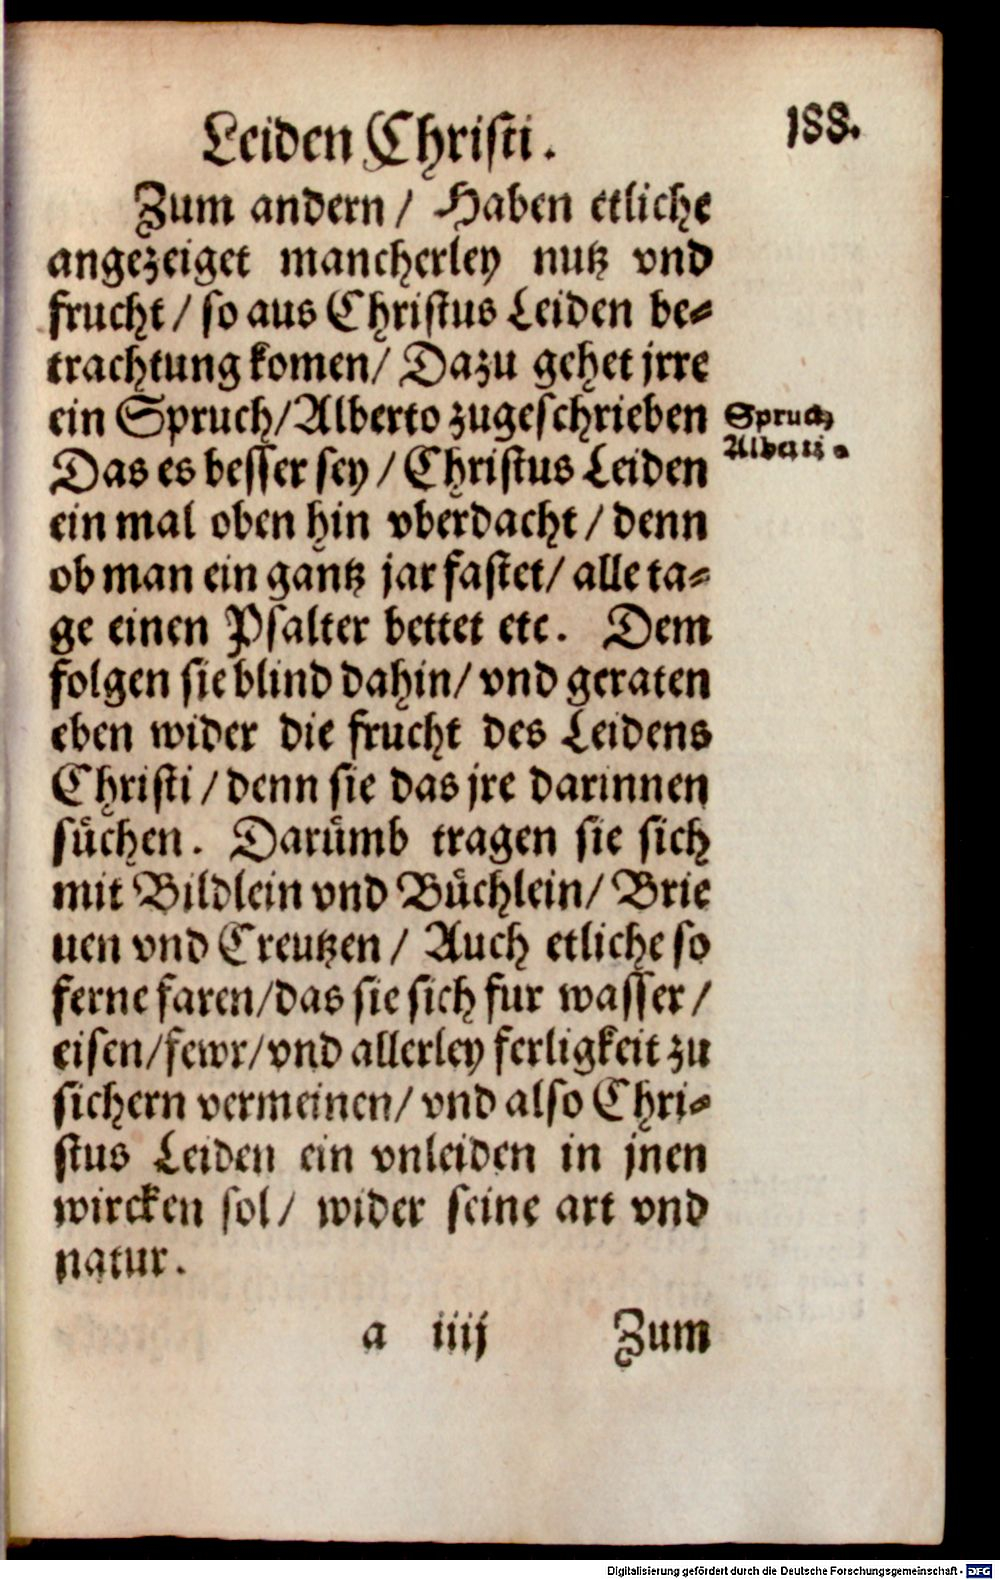 Leiden Christi.
188.
Zum andern / Haben etliche
angezeiget mancherley nutz vnd
frucht / so aus Christus Leiden be⸗
trachtung komen / Dazu gehet jrre
ein Spruch / Alberto zugeschrieben
Spruch
Alberti.
Das es besser sey / Christus Leiden
ein mal oben hin vberdacht / denn
ob man ein gantz jar fastet / alle ta⸗
ge einen Psalter bettet etc. Dem
folgen sie blind dahin / vnd geraten
eben wider die frucht des Leidens
Christi / denn sie das jre darinnen
sůchen. Darůmb tragen sie sich
mit Bildlein vnd Bůchlein / Brie
uen vnd Creutzen / Auch etliche so
ferne faren / das sie sich fur wasser /
eisen / fewr / vnd allerley ferligkeit zu
sichern vermeinen / vnd also Chri⸗
stus Leiden ein vnleiden in jnen
wircken sol / wider seine art vnd
natur.
a iiij Zum
Digitalisierung gefördert durch die Deutsche Forschungsgemeinschaft - DFG